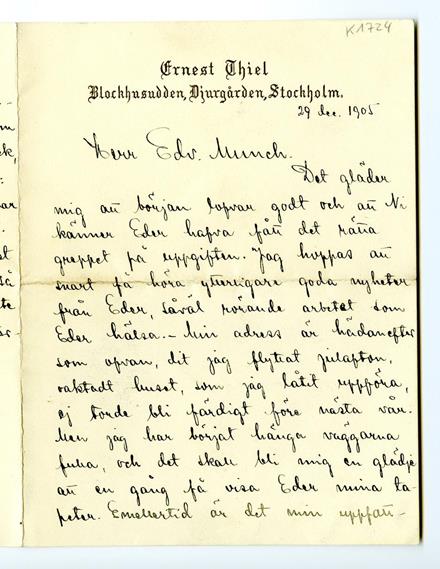 K1724
Ernest Thiel
Blockhusudden, Djurgården, Stockholm.
29 dec. 1905
Herr Edv. Munch.
Det gläder
mig att början lofvar godt och att Ni
känner Eder hafva fått det rätta
greppet på uppgiften. Jag hoppas att
snart få höra ytterligare goda nyheter
från Eder, såväl rörande arbetet som
Eder hälsa. – Min adress är hädanefter
som ofvan, dit jag flyttat julafton,
oaktadt huset, som jag låtit uppföra,
ej torde bli färdigt före nästa vår.
Men jag har börjat hänga väggarna
fulla, och det skall bli mig en glädje
att en gång få visa Eder mina ta-
peter. Emellertid är det min uppfatt-